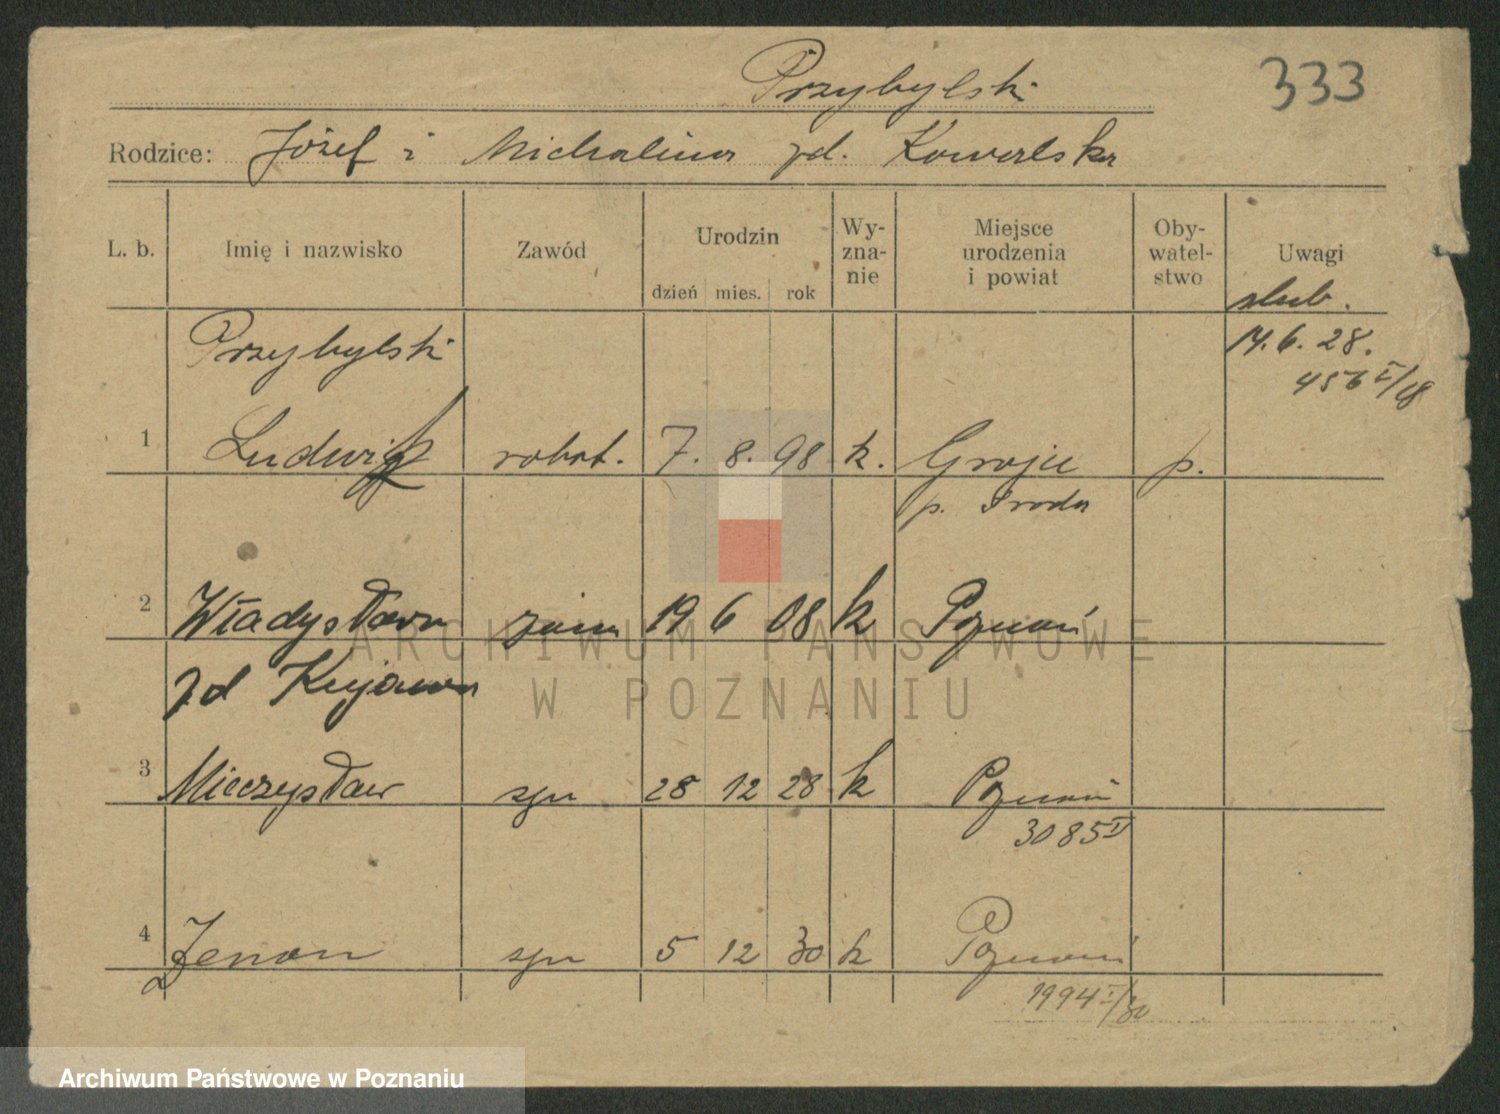 Przybylski 333
Rodzice: Józef i Michalina zd. Kowalska
L. b. Imię i nazwisko Zawód Urodzin dzień mies. rok Wy-zna-nie Miejsce urodzenia i powiat Oby-watel-stwo Uwagi
ślub.
Przybylski 14. 6. 28.
456 I/28
1 Ludwik robot. 7. 8. 98 k. Grojec p.
p. Środa
2 Władysława żona 19 6 08 k Poznań
zd Kujawa
3 Mieczysław syn 28 12 28 k Poznań
3085 V
4 Zenon syn 5 12 30 k Poznań
1994 I/30
ARCHIWUM PAŃSTWOWE
W POZNANIU
Archiwum Państwowe w Poznaniu